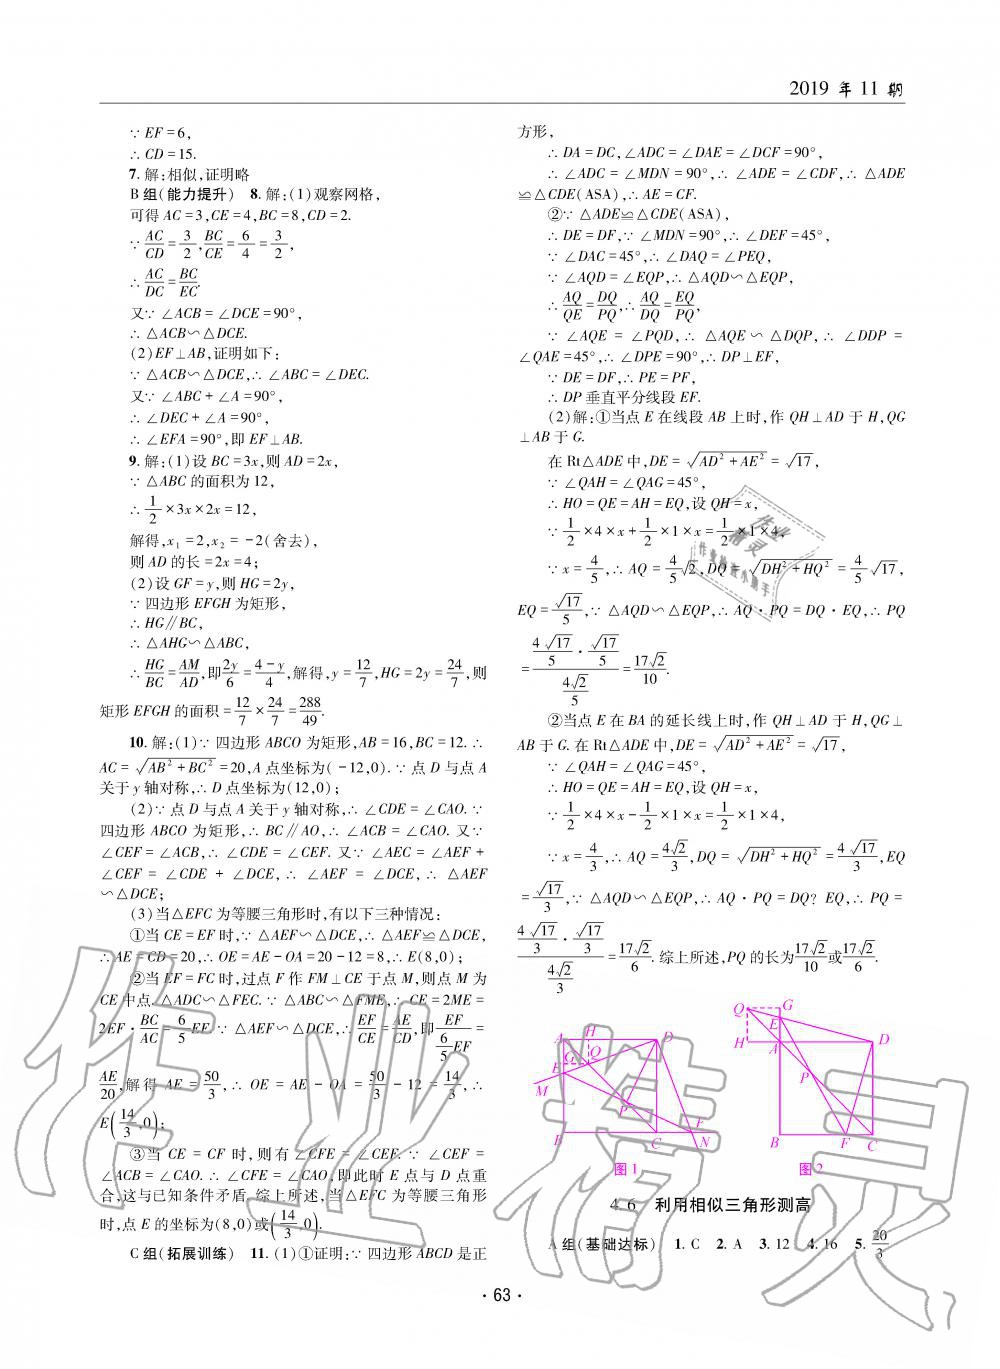 2019 年 11 期
∵ EF=6,
∴ CD=15.
7. 解:相似,证明略
B 组(能力提升) 8. 解:(1)观察网格,
可得 AC=3,CE=4,BC=8,CD=2.
∵ AC/CD = 3/2, BC/CE = 6/4 = 3/2,
∴ AC/DC = BC/EC.
又∵ ∠ACB=∠DCE=90°,
∴ △ACB∽△DCE.
(2)EF⊥AB,证明如下:
∵ △ACB∽△DCE,∴ ∠ABC=∠DEC.
又∵ ∠ABC+∠A=90°,
∴ ∠DEC+∠A=90°,
∴ ∠EFA=90°,即 EF⊥AB.
9. 解:(1)设 BC=3x,则 AD=2x,
∵ △ABC 的面积为 12,
∴ 1/2 ×3x×2x=12,
解得,x₁=2,x₂=-2(舍去),
则 AD 的长=2x=4;
(2)设 GF=y,则 HG=2y,
∵ 四边形 EFGH 为矩形,
∴ HG∥BC,
∴ △AHG∽△ABC,
∴ HG/BC = AM/AD,即 2y/6 = (4-y)/4,解得,y= 12/7,HG=2y= 24/7,则
矩形 EFGH 的面积= 12/7 × 24/7 = 288/49.
10. 解:(1)∵ 四边形 ABCO 为矩形,AB=16,BC=12. ∴
AC= √(AB²+BC²) =20,A 点坐标为(-12,0). ∵ 点 D 与点 A
关于 y 轴对称,∴ D 点坐标为(12,0);
(2)∵ 点 D 与点 A 关于 y 轴对称,∴ ∠CDE=∠CAO. ∵
四边形 ABCO 为矩形,∴ BC∥AO,∴ ∠ACB=∠CAO. 又∵
∠CEF=∠ACB,∴ ∠CDE=∠CEF. 又∵ ∠AEC=∠AEF+
∠CEF=∠CDE+∠DCE,∴ ∠AEF=∠DCE,∴ △AEF
∽△DCE;
(3)当△EFC 为等腰三角形时,有以下三种情况:
①当 CE=EF 时,∵ △AEF∽△DCE,∴ △AEF≌△DCE,
∴ AE=CD=20,∴ OE=AE-OA=20-12=8,∴ E(8,0);
②当 EF=FC 时,过点 F 作 FM⊥CE 于点 M,则点 M 为
CE 中点. △ADC∽△FEC. ∵ △ABC∽△FME,∴ CE=2ME=
2EF· BC/AC = 6/5 EF. ∵ △AEF∽△DCE,∴ EF/CE = AE/CD,即 EF/(6/5 EF) =
AE/20,解得 AE= 50/3,∴ OE=AE-OA= 50/3 -12= 14/3,∴
E(14/3,0);
③当 CE=CF 时,则有∠CFE=∠CEF. ∵ ∠CEF=
∠ACB=∠CAO. ∴ ∠CFE=∠CAO,即此时 E 点与 D 点重
合,这与已知条件矛盾. 综上所述,当△EFC 为等腰三角形
时,点 E 的坐标为(8,0)或(14/3,0).
C 组(拓展训练) 11. (1)①证明:∵ 四边形 ABCD 是正
方形,
∴ DA=DC,∠ADC=∠DAE=∠DCF=90°,
∴ ∠ADC=∠MDN=90°,∴ ∠ADE=∠CDF,∴ △ADE
≌△CDE(ASA),∴ AE=CF.
②∵ △ADE≌△CDE(ASA),
∴ DE=DF,∵ ∠MDN=90°,∴ ∠DEF=45°,
∵ ∠DAC=45°,∴ ∠DAQ=∠PEQ,
∵ ∠AQD=∠EQP,∴ △AQD∽△EQP,
∴ AQ/QE = DQ/PQ,∴ AQ/DQ = EQ/PQ,
∵ ∠AQE=∠PQD,∴ △AQE∽△DQP,∴ ∠DDP=
∠QAE=45°,∴ ∠DPE=90°,∴ DP⊥EF,
∵ DE=DF,∴ PE=PF,
∴ DP 垂直平分线段 EF.
(2)解:①当点 E 在线段 AB 上时,作 QH⊥AD 于 H,QG
⊥AB 于 G.
在 Rt△ADE 中,DE= √(AD²+AE²) = √17,
∵ ∠QAH=∠QAG=45°,
∴ HO=QE=AH=EQ,设 QH=x,
∵ 1/2 ×4×x+ 1/2 ×1×x= 1/2 ×1×4,
∵ x= 4/5,∴ AQ= 4/5 √2,DQ= √(DH²+HQ²) = 4/5 √17,
EQ= √17/5,∵ △AQD∽△EQP,∴ AQ·PQ=DQ·EQ,∴ PQ
= (4√17/5 · √17/5)/(4√2/5) = 17√2/10.
②当点 E 在 BA 的延长线上时,作 QH⊥AD 于 H,QG⊥
AB 于 G. 在 Rt△ADE 中,DE= √(AD²+AE²) = √17,
∵ ∠QAH=∠QAG=45°,
∴ HO=QE=AH=EQ,设 QH=x,
∵ 1/2 ×4×x- 1/2 ×1×x= 1/2 ×1×4,
∵ x= 4/3,∴ AQ= 4√2/3,DQ= √(DH²+HQ²) = 4√17/3,EQ
= √17/3,∵ △AQD∽△EQP,∴ AQ·PQ=DQ? EQ,∴ PQ=
(4√17/3 · √17/3)/(4√2/3) = 17√2/6. 综上所述,PQ 的长为 17√2/10 或 17√2/6.
A H D
G Q
E
M
P
F
B C N
图 1
Q G
E
H A D
P
B F C
图 2
4.6 利用相似三角形测高
A 组(基础达标) 1. C 2. A 3. 12 4. 16 5. 20/3
· 63 ·
作业精灵